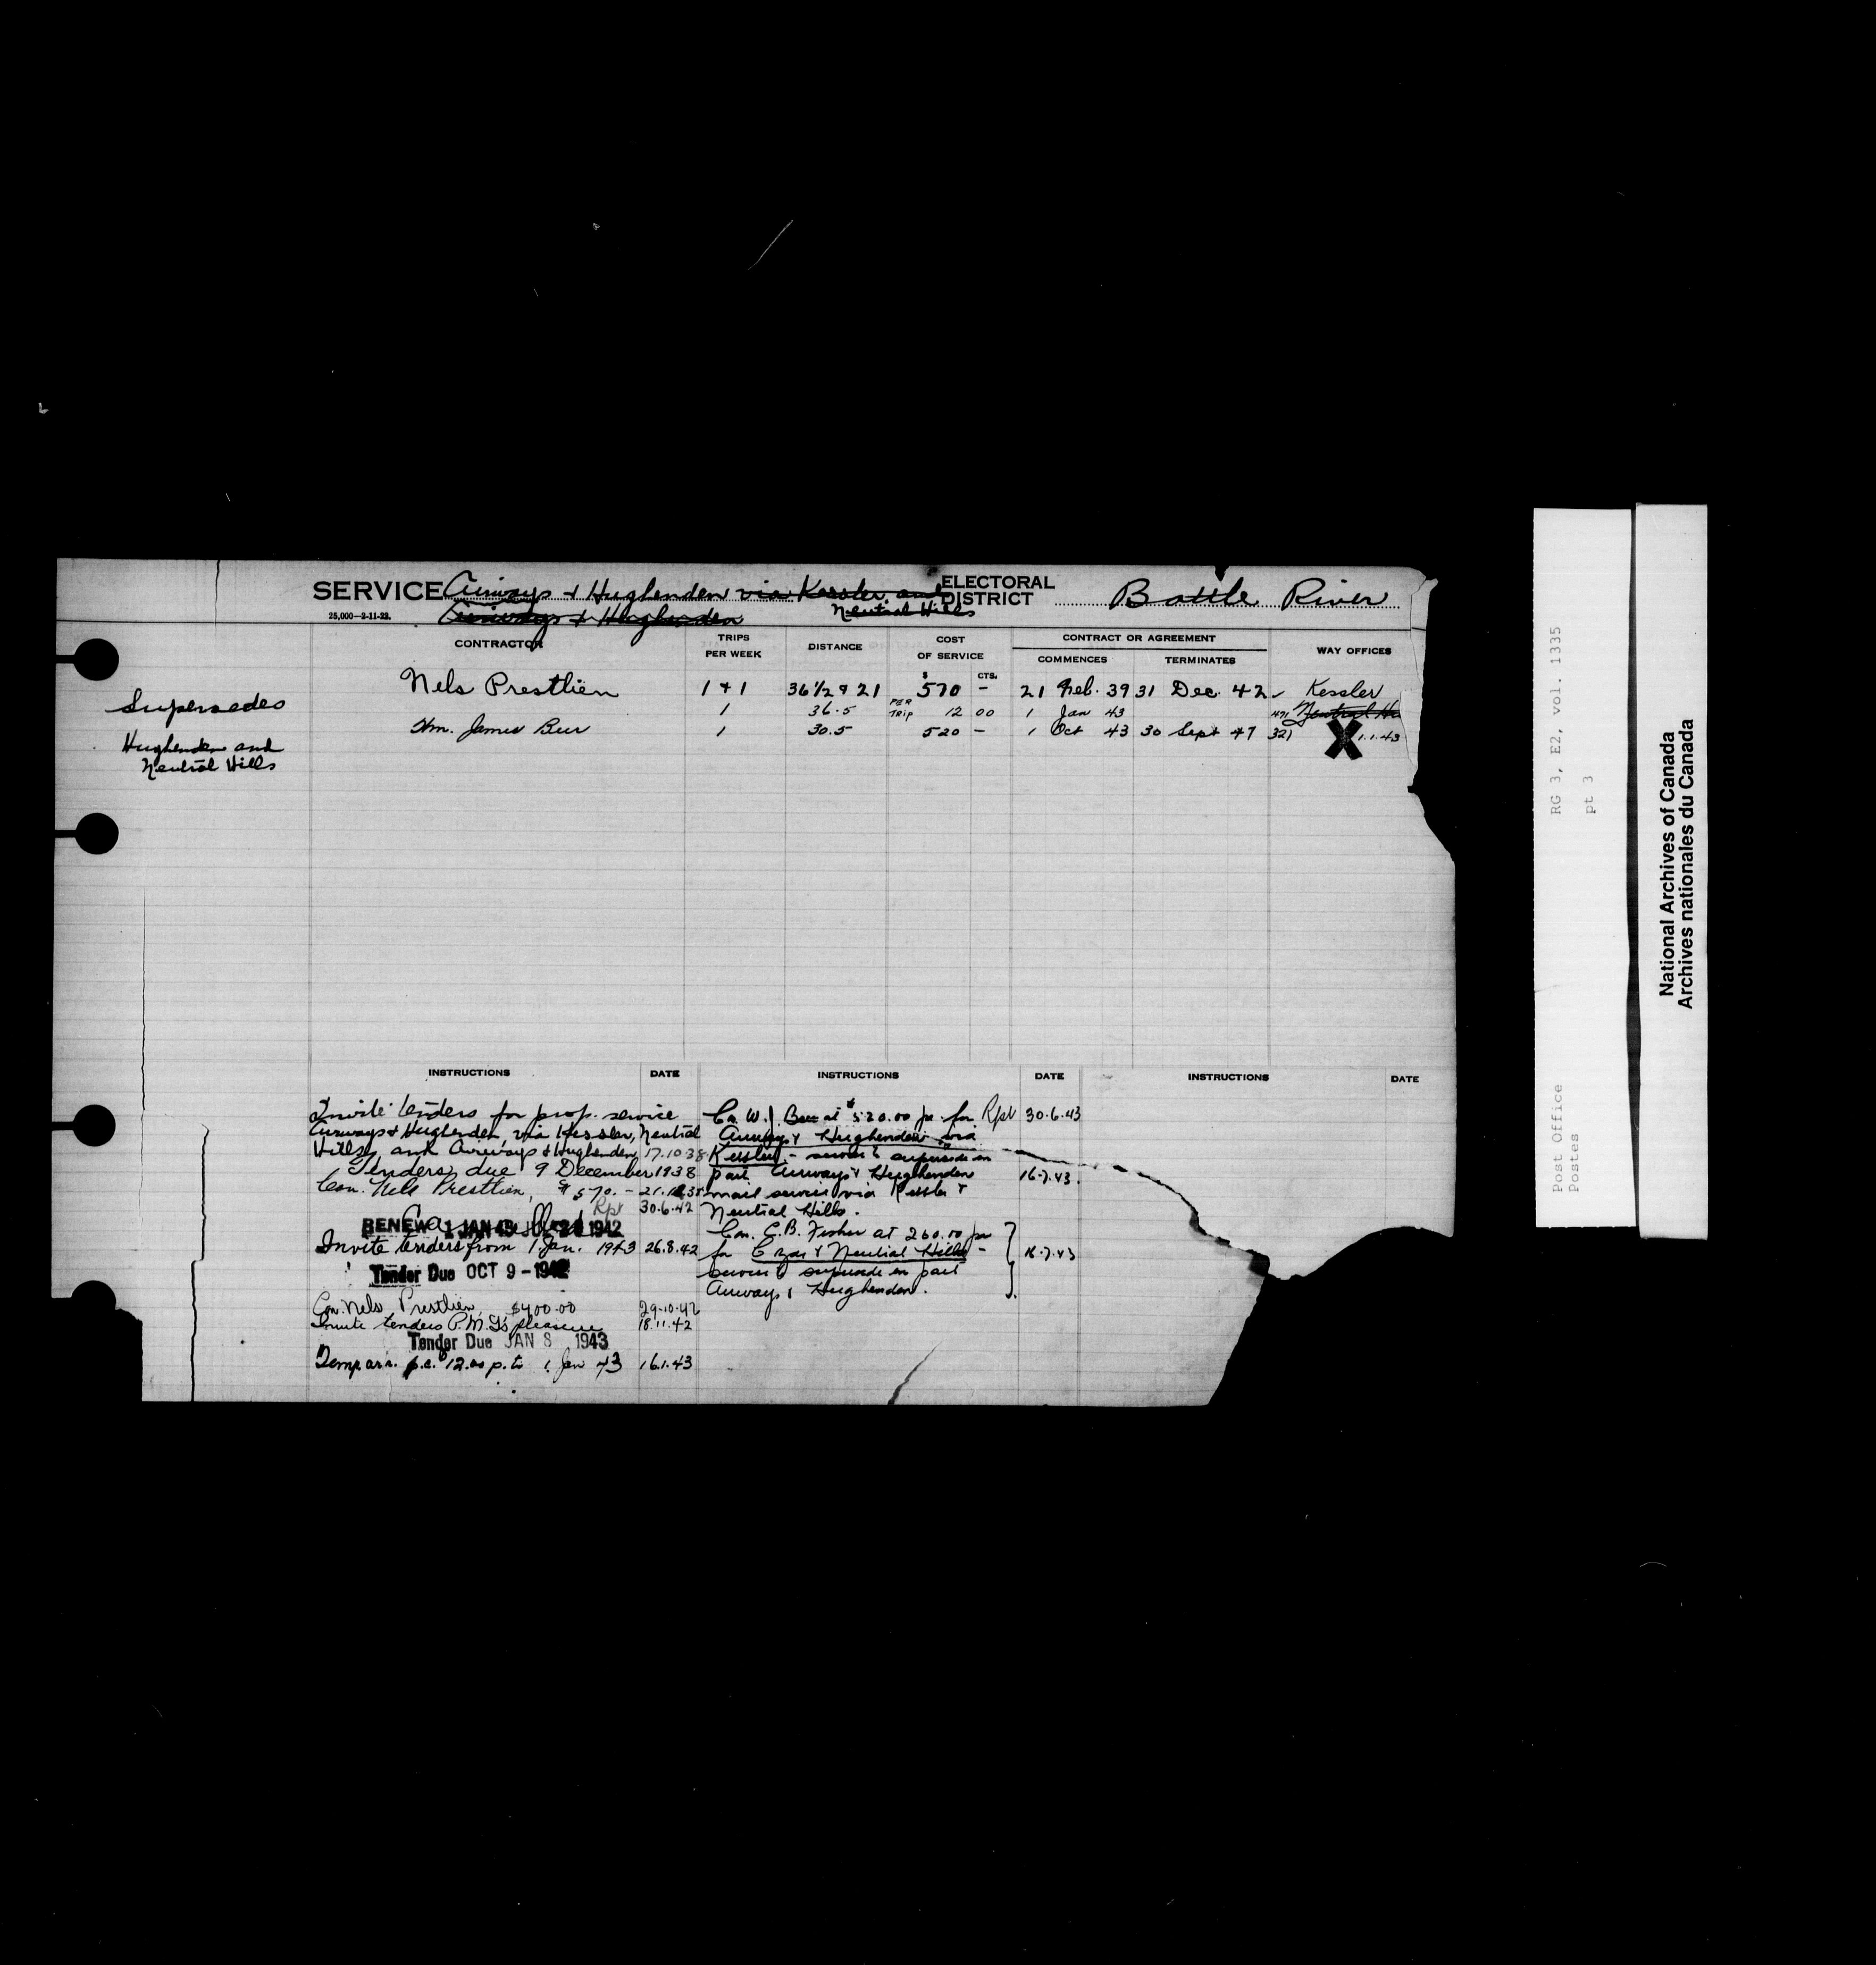 SERVICE Airways & Hughenden via Kessler and
Neutral Hills
Airways & Hughenden
25,000—2-11-22.
ELECTORAL DISTRICT Battle River
CONTRACTOR TRIPS PER WEEK DISTANCE COST OF SERVICE CONTRACT OR AGREEMENT WAY OFFICES
COMMENCES TERMINATES
$ CTS.
Nels Prestlien 1 + 1 36 1/2 & 21 570 — 21 Feb. 39 31 Dec. 42 Kessler
1 36.5 PER TRIP 12 00 1 Jan 43 491 Neutral Hi
Wm. James Beer 1 30.5 520 — 1 Oct 43 30 Sept 47 321 X 1.1.43
Supersedes
Hughenden and
Neutral Hills
INSTRUCTIONS DATE
Invite tenders for prop. service
Airways & Hughenden, via Kessler, Neutral
Hills, and Airways & Hughenden 17.10.38
Tenders due 9 December 1938
Con. Nels Prestlien, $570. —
Rpt 30.6.42
RENEW 1 JAN 43 1942
Cancelled
Invite tenders from 1 Jan. 1943 26.8.42
Tender Due OCT 9 - 1942
Con. Nels Prestlien, $400.00 29.10.42
Invite tenders P.M.G's pleasure 18.11.42
Tender Due JAN 8 1943
Temp. arr. 12.00 p.t. 1 Jan 43 16.1.43
INSTRUCTIONS DATE
Con. W.J. Beer at $520.00 pa. for Rpt 30.6.43
Airways & Hughenden via
Kessler - service to supersede in
part Airways & Hughenden 16.7.43.
mail service via Kessler &
Neutral Hills.
Con. C.B. Fisher at 260.00 pa
for Czar & Neutral Hills - 16.7.43
service to supersede in part
Airways & Hughenden.
INSTRUCTIONS DATE
RG 3, E2, vol. 1335
pt 3
Post Office
Postes
National Archives of Canada
Archives nationales du Canada